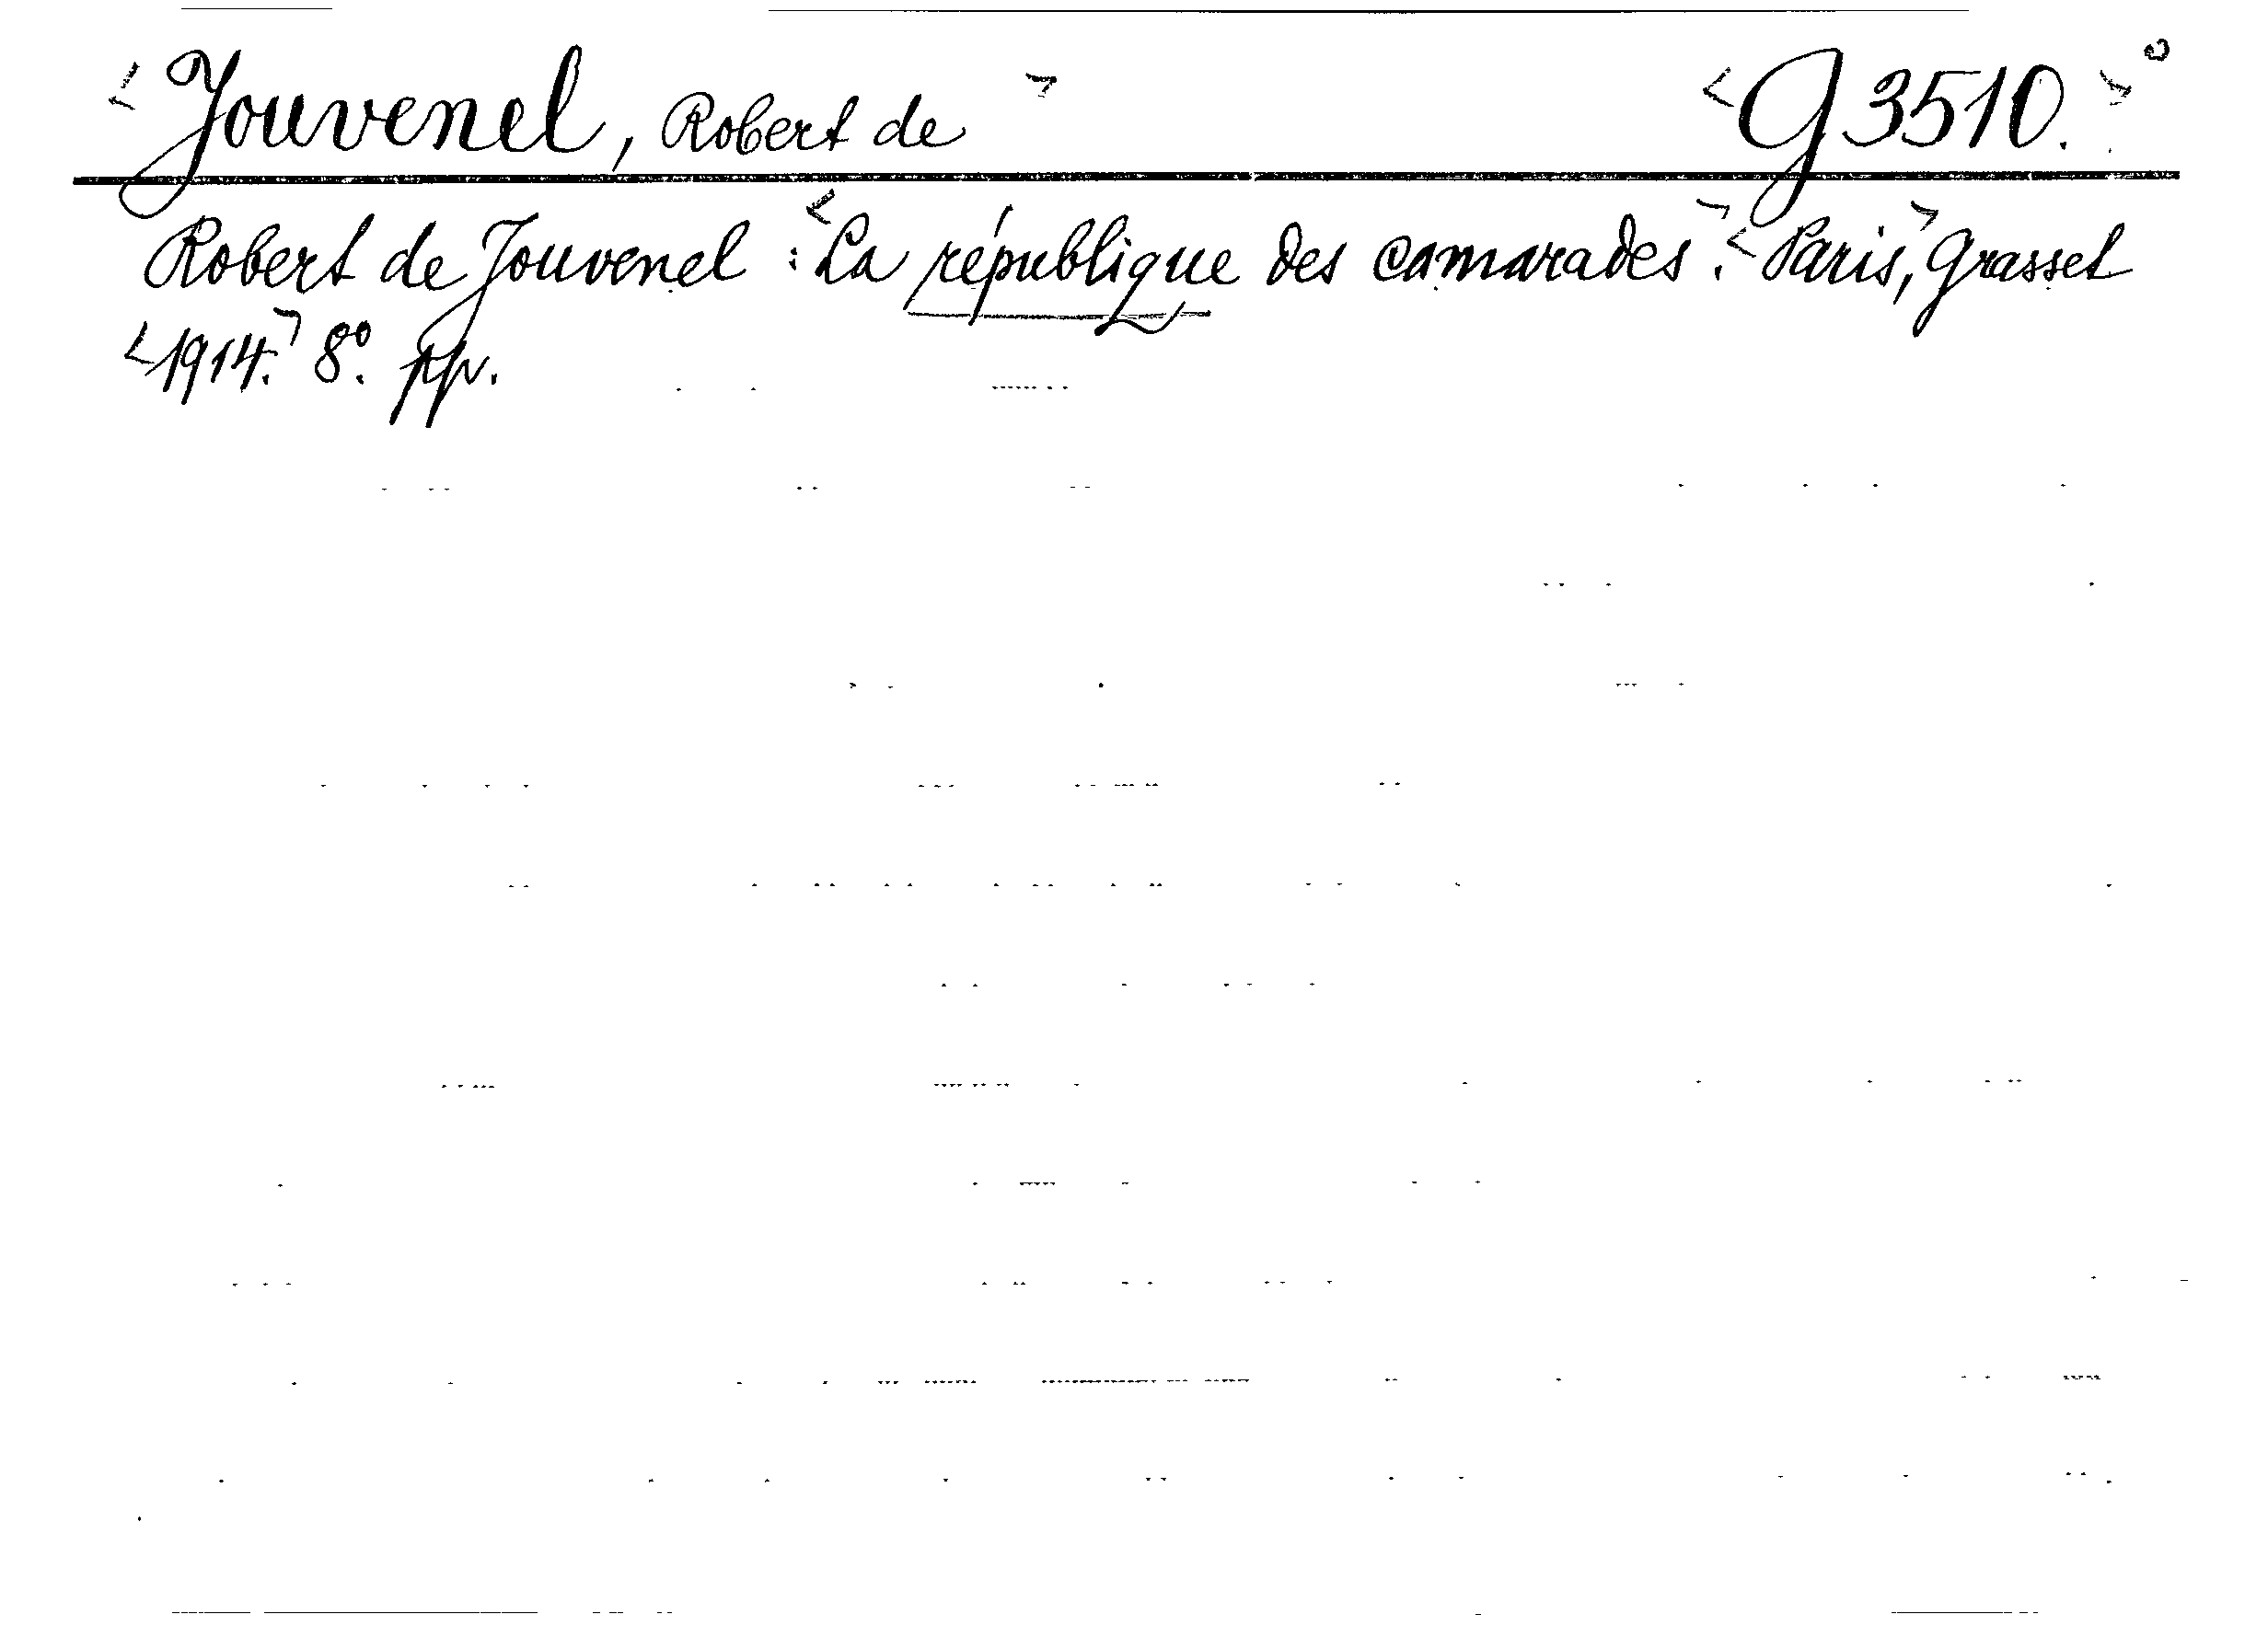 <Jouvenel, Robert de> <G 3510.>°
Robert de Jouvenel : <La république des camarades>. <Paris>, Grasset
<1914.> 8°. pp.